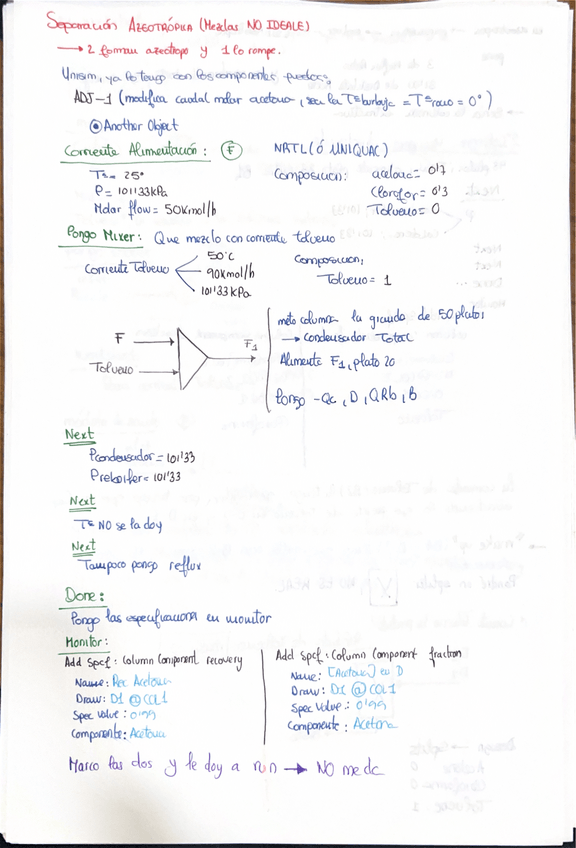 Separación AZEOTRÓPICA (Mezclas NO IDEALES)
→ 2 forman azeótropo y 1 lo rompe.
Unisim, ya lo tengo con los componentes puestos.
ADJ-1 (modifica caudal molar acetona, sea la Tªburbuja = Tªrocío = 0°)
Another Object
Corriente Alimentación: F NRTL (ó UNIQUAC)
Tª = 25° Composición: acetona = 0'7
P = 101'33 kPa Clorofor = 0'3
Molar flow = 50 Kmol/h Tolueno = 0
Pongo Mixer: Que mezclo con corriente tolueno
Corriente Tolueno 50°C Composición,
90 Kmol/h Tolueno = 1
101'33 kPa
meto columna la grande de 50 platos
F F1 → Condensador Total
Tolueno Alimento F1, plato 20
Pongo -Qc, D, QRb, B
Next
Pcondensador = 101'33
Preboiler = 101'33
Next
Tª NO se la doy
Next
Tampoco pongo reflux
Done:
Pongo las especificaciones en monitor
Monitor:
Add Spcf: Column Component recovery
Name: Rec Acetona
Draw: D1 @ COL1
Spec Value: 0'99
Componente: Acetona
Add Spcf: Column Component fraction
Name: [Acetona] en D
Draw: D1 @ COL1
Spec Value: 0'99
Componente: Acetona
Marco las dos y le doy a run → NO me da